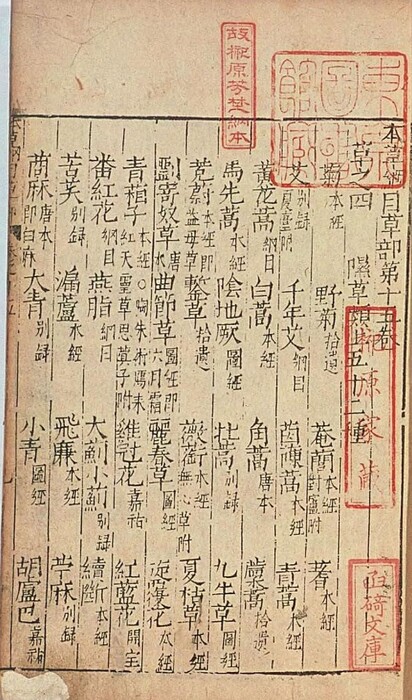 故榊原芳埜納本
東京圖書館藏
本草綱目草部第十五卷
草之四 隰草類上五十三種
菊本經 野菊拾遺 菴䕡本經對廬附 蓍本經
艾別錄夏臺附 千年艾綱目 茵陳蒿本經 青蒿本經
黄花蒿綱目 白蒿本經 角蒿唐本 䕲蒿拾遺
馬先蒿本經 陰地厥圖經 牡蒿別錄 九牛草圖經
茺蔚本經即益母草 鏨菜拾遺 薇銜本經無心草附 夏枯草本經
劉寄奴草唐本 曲節草圖經即六月霜 麗春草圖經 旋覆花本經
青葙子本經○桃朱術鴈來紅天靈草思蓂子附 雞冠花嘉祐 紅藍花開寶
番紅花綱目 燕脂綱目 大薊小薊別錄 續斷本經
苦芺別錄 漏蘆本經 飛廉本經 苧麻別錄
苘麻唐本即白麻 大青別錄 小青圖經 胡盧巴嘉祐
榊原家藏
文庫